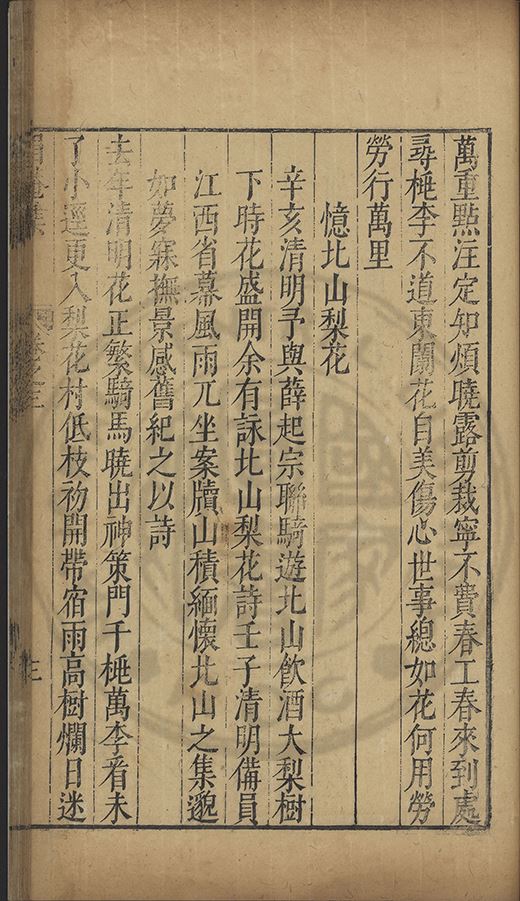 萬重點注定知煩曉露剪裁寧不費春工春來到處
尋桃李不道東闌花自美傷心世事總如花何用勞
勞行萬里
憶北山梨花
辛亥清明予與薛起宗聯騎遊北山飲酒大梨樹
下時花盛開余有詠北山梨花詩壬子清明備員
江西省幕風雨兀坐案牘山積緬懷北山之集邈
如夢寐撫景感舊紀之以詩
去年清明花正繁騎馬曉出神策門千桃萬李看未
了小逕更入梨花村低枝初開帶宿雨高樹爛日迷
眉菴集
卷之三
三